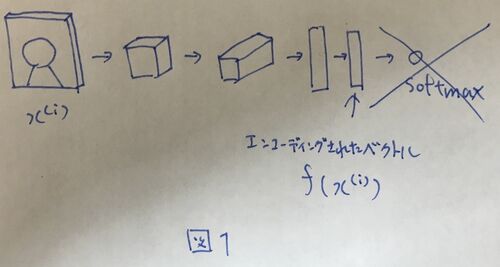 x(i)
softmax
エンコーディングされたベクトル
f(x(i))
図1